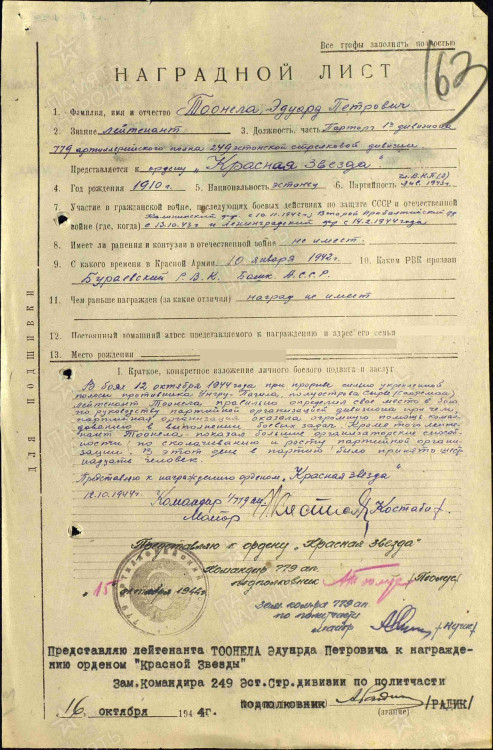 Все графы заполнять полностью
163
НАГРАДНОЙ ЛИСТ
1. Фамилия, имя и отчество Тоонела, Эдуард Петрович
2. Звание лейтенант 3. Должность, часть Парторг 1го дивизиона
779 артиллерийского полка 249 эстонской стрелковой дивизии.
Представляется к ордену „Красная Звезда"
4. Год рождения 1910 г. 5. Национальность эстонец 6. Партийность чл. В.К.П.(б)
7. Участие в гражданской войне, последующих боевых действиях по защите СССР и отечественной
войне (где, когда) с 13.10.43 г. и Ленинградский фр с 14.2.1944 года
8. Имеет ли ранения и контузии в отечественной войне не имеет.
9. С какого времени в Красной Армии 10 января 1942 г. 10. Каким РВК призван
Бураевский Р.В.К. Башк. А.С.С.Р.
11. Чем раньше награжден (за какие отличия) наград не имеет
12. Постоянный домашний адрес представляемого к награждению и адрес его семьи
13. Место рождения
ДЛЯ ПОДШИВКИ
I. Краткое, конкретное изложение личного боевого подвига и заслуг
В боях 12 октября 1944 года при прорыве сильно укрепленной
полосы противника полуострова Сырве
лейтенант Тоонела правильно определил свое место в бою
по руководству партийной организацией дивизиона при чем,
партийная организация оказала огромную помощь коман-
дованию в выполнении боевых задач. Кроме того лейте-
нант Тоонела показал большие организаторские способ-
ности по сколачиванию и росту партийной органи-
зации. В этот день в партию было принято шест-
надцать человек.
Представляю к награждению орденом „Красная Звезда"
12.10.1944 г.
Командир 1/779 ап
Майор /Костаби/.
Представляю к ордену „Красная Звезда"
Командир 779 ап
подполковник
„15" октября 1944 г.
Зам. ком-ра 779 ап
по политчасти
майор
Представляю лейтенанта ТООНЕЛА Эдуарда Петровича к награжде-
нию орденом "Красной Звезды"
Зам. Командира 249 Эст. Стр. дивизии по политчасти
подполковник /РАДИК/
(звание)
„16" октября 1944 г.